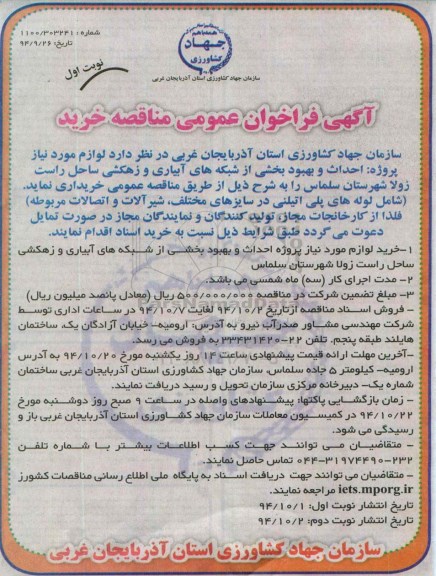 شماره: ۱۱۰۰/۳۰۳۲۴۱
تاریخ: ۹۴/۹/۲۶
همه با هم
جهاد
کشاورزی
سازمان جهاد کشاورزی استان آذربایجان غربی
نوبت اول
آگهی فراخوان عمومی مناقصه خرید
سازمان جهاد کشاورزی استان آذربایجان غربی در نظر دارد لوازم مورد نیاز
پروژه: احداث و بهبود بخشی از شبکه های آبیاری و زهکشی ساحل راست
زولا شهرستان سلماس را به شرح ذیل از طریق مناقصه عمومی خریداری نماید.
(شامل لوله های پلی اتیلنی در سایزهای مختلف، شیرآلات و اتصالات مربوطه)
فلذا از کارخانجات مجاز، تولید کنندگان و نمایندگان مجاز در صورت تمایل
دعوت می گردد طبق شرایط ذیل نسبت به خرید اسناد اقدام نمایند.
۱-خرید لوازم مورد نیاز پروژه احداث و بهبود بخشی از شبکه های آبیاری و زهکشی
ساحل راست زولا شهرستان سلماس
۲- مدت اجرای کار (سه) ماه شمسی می باشد.
۳- مبلغ تضمین شرکت در مناقصه ۵۰۰/۰۰۰/۰۰۰ ریال (معادل پانصد میلیون ریال)
- فروش اسناد مناقصه ازتاریخ ۹۴/۱۰/۲ لغایت ۹۴/۱۰/۷ در ساعات اداری توسط
شرکت مهندسی مشاور صدرآب نیرو به آدرس: ارومیه- خیابان آزادگان یک، ساختمان
هایلند طبقه پنجم. تلفن ۲۲-۳۳۴۳۱۴۲۰ به فروش می رسد.
-آخرین مهلت ارائه قیمت پیشنهادی ساعت ۱۴ روز یکشنبه مورخ ۹۴/۱۰/۲۰ به آدرس
ارومیه- کیلومتر ۵ جاده سلماس، سازمان جهاد کشاورزی استان آذربایجان غربی ساختمان
شماره یک- دبیرخانه مرکزی سازمان تحویل و رسید دریافت نمایند.
- زمان بازگشایی پاکتها: پیشنهادهای واصله در ساعت ۹ صبح روز دوشنبه مورخ
۹۴/۱۰/۲۲ در کمیسیون معاملات سازمان جهاد کشاورزی استان آذربایجان غربی باز و
رسیدگی می شود.
- متقاضیان می توانند جهت کسب اطلاعات بیشتر با شماره تلفن
۰۴۴-۳۱۹۷۴۴۹۰-۲۳۲ تماس حاصل نمایند.
- متقاضیان می توانند جهت دریافت اسناد به پایگاه ملی اطلاع رسانی مناقصات کشورز
iets.mporg.ir مراجعه نمایند.
تاریخ انتشار نوبت اول: ۹۴/۱۰/۱
تاریخ انتشار نوبت دوم: ۹۴/۱۰/۲
سازمان جهاد کشاورزی استان آذربایجان غربی